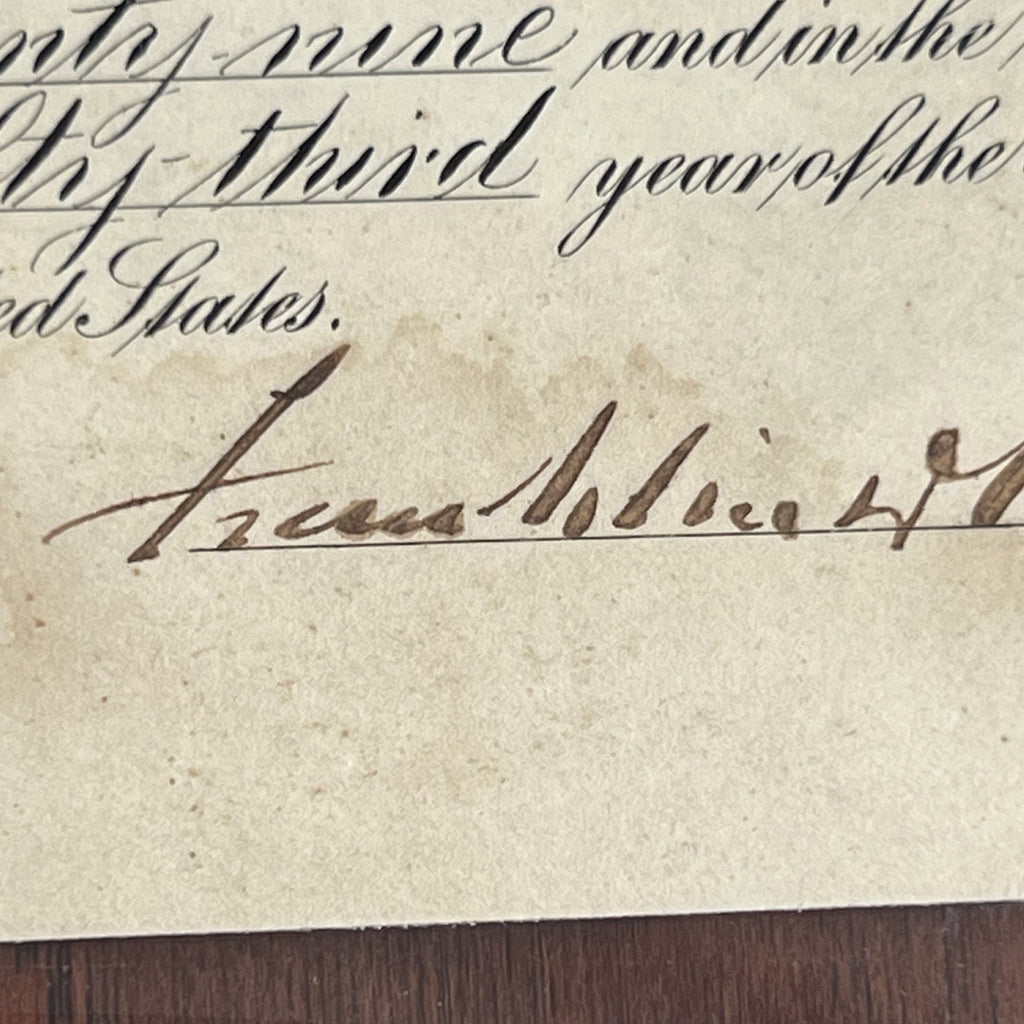 nty-nine and in the
fty-third year of the
ed States.
Franklin D